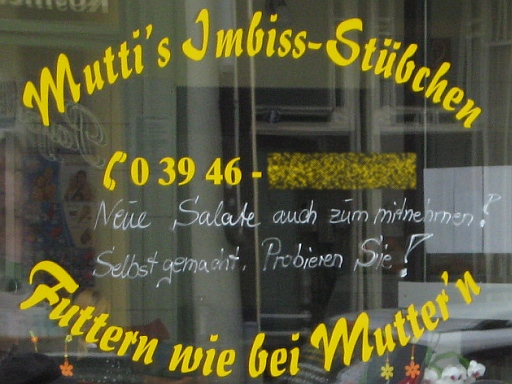 Mutti's Imbiss-Stübchen
0 39 46 -
Neue Salate auch zum mitnehmen!
Selbstgemacht. Probieren Sie!
Futtern wie bei Mutter'n